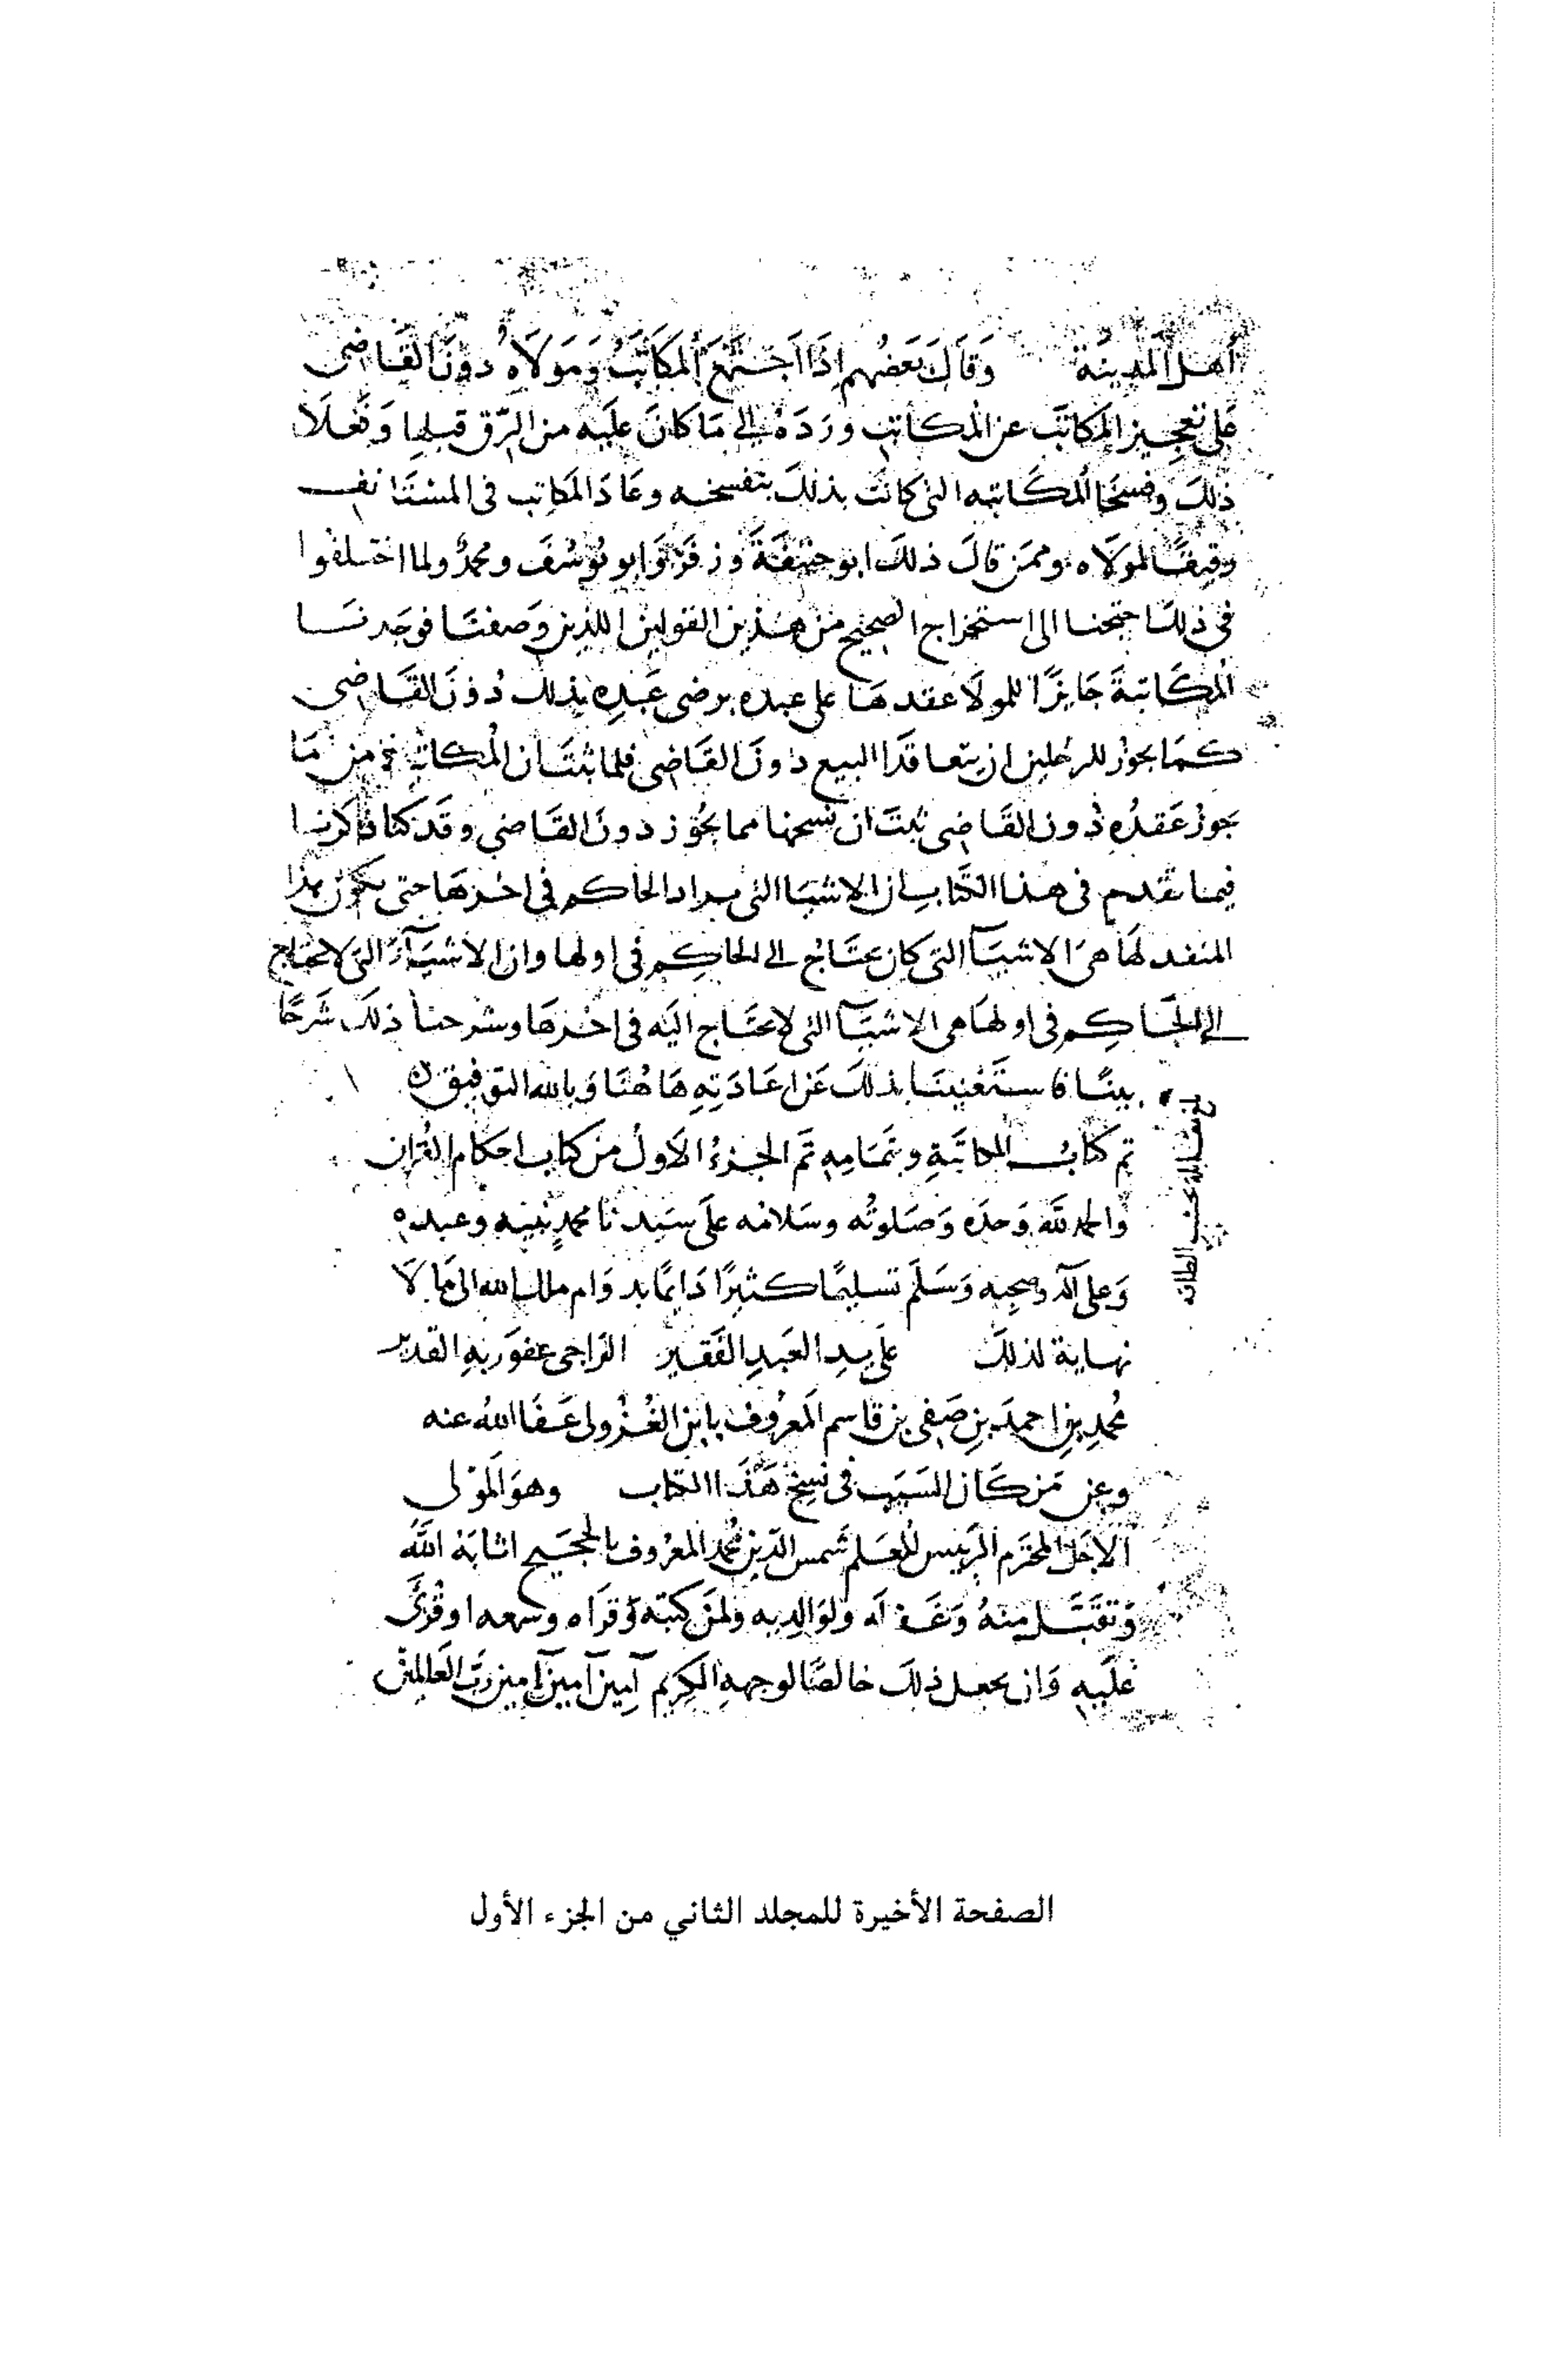 اهل المدينة وقال بعضهم اذا اجتمع المكاتب ومولاه دون القاضى
على تعجيز المكاتب عن المكاتبه ورده الى ما كان عليه من الرق قبلها وفعلا
ذلك وفسخا المكاتبه التى كانت بذلك بتفسخه وعاد المكاتب فى المستانف
رقيقًا لمولاه وممن قال ذلك ابو حنيفة وزفر وابو يوسف ومحمد ولما اختلفوا
فى ذلك احتجنا الى استخراج الصحيح من هذين القولين اللذين وصفنا فوجدنا
المكاتبة جايزًا للمولا عقدها على عبده برضى عبده بذلك دون القاضى
كما يجوز للرجلين ان يتعاقدا البيع دون القاضى فلما ثبت ان المكاتبة من ما
يجوز عقده دون القاضى ثبت ان فسخها مما يجوز دون القاضي وقد كنا ذكرنا
فيما تقدم فى هذا الكتاب ان الاشيا التى يراد الحاكم فى اخرها حتى يكون هذا
المنفد لها هى الاشيآ التى كان يحتاج الى الحاكم فى اولها وان الاشيآء التى لا يحتاج
الى الحاكم فى اولها هى الاشيآ التى لا يحتاج اليه فى اخرها وشرحنا ذلك شرحًا
بينًا فاستغنينا بذلك عن اعادته هاهنا وبالله التوفيق
تم كتاب المكاتبة وبتمامه تم الجزء الاول من كتاب احكام القران
والحمد لله وحده وصلوته وسلامه على سيدنا محمد نبيه وعبده
وعلى آله وصحبه وسلم تسليمًا كثيرًا دايمًا بدوام ملك الله الى ما لا
نهاية لذلك على يد العبد الفقير الراجى عفو ربه القدير
محمد بن احمد بن صفى بن قاسم المعروف بابن الغزولى عفا الله عنه
وعن من كان السبب فى نسخ هذا الكتاب وهو المولى
الاجل المحترم الريس المعلم شمس الدين محمد المعروف اثابه الله
وتقبل منه وغفر له ولوالديه ولمن كتبه او قراه وسمعه او قرئ
عليه وان يجعل ذلك خالصًا لوجهه الكريم آمين آمين آمين رب العالمين
بلغ مقابلة بحسب الطاقه
الصفحة الأخيرة للمجلد الثاني من الجزء الأول